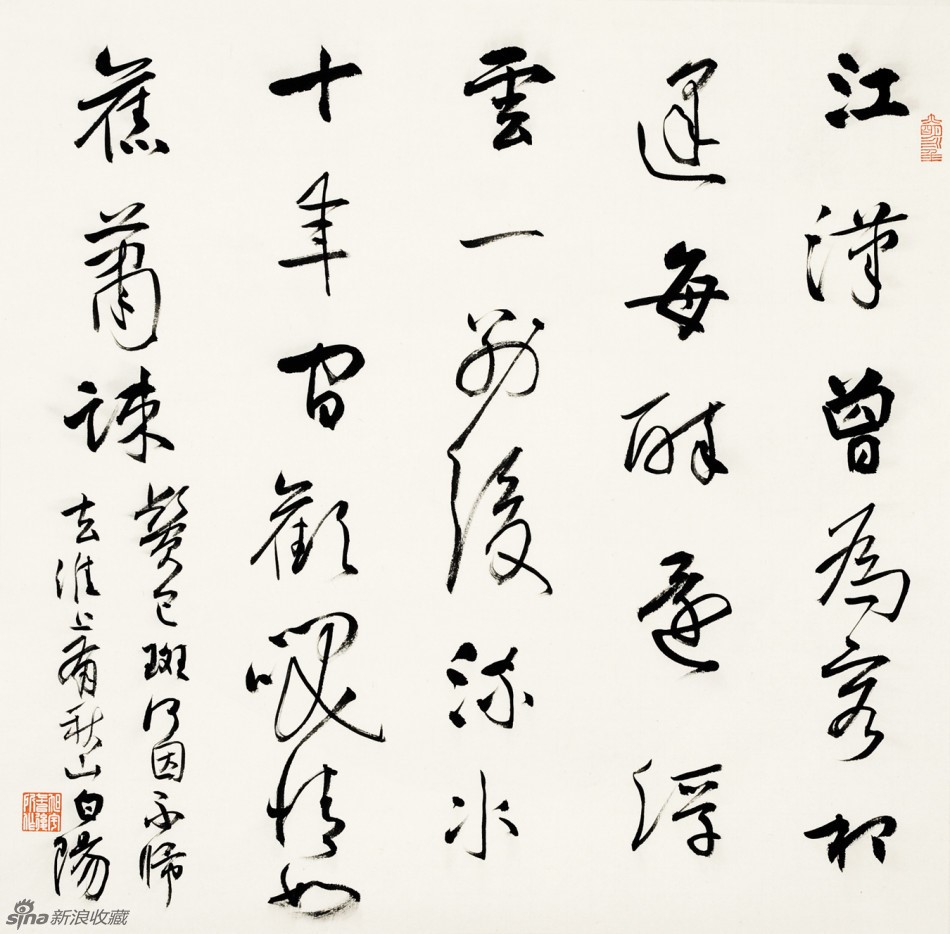 江漢曾為客相
逢每醉還浮
雲一別後流水
十年間歡咲情如
舊蕭疎
鬢已斑何因不歸
去淮上有秋山白陽
sina新浪收藏